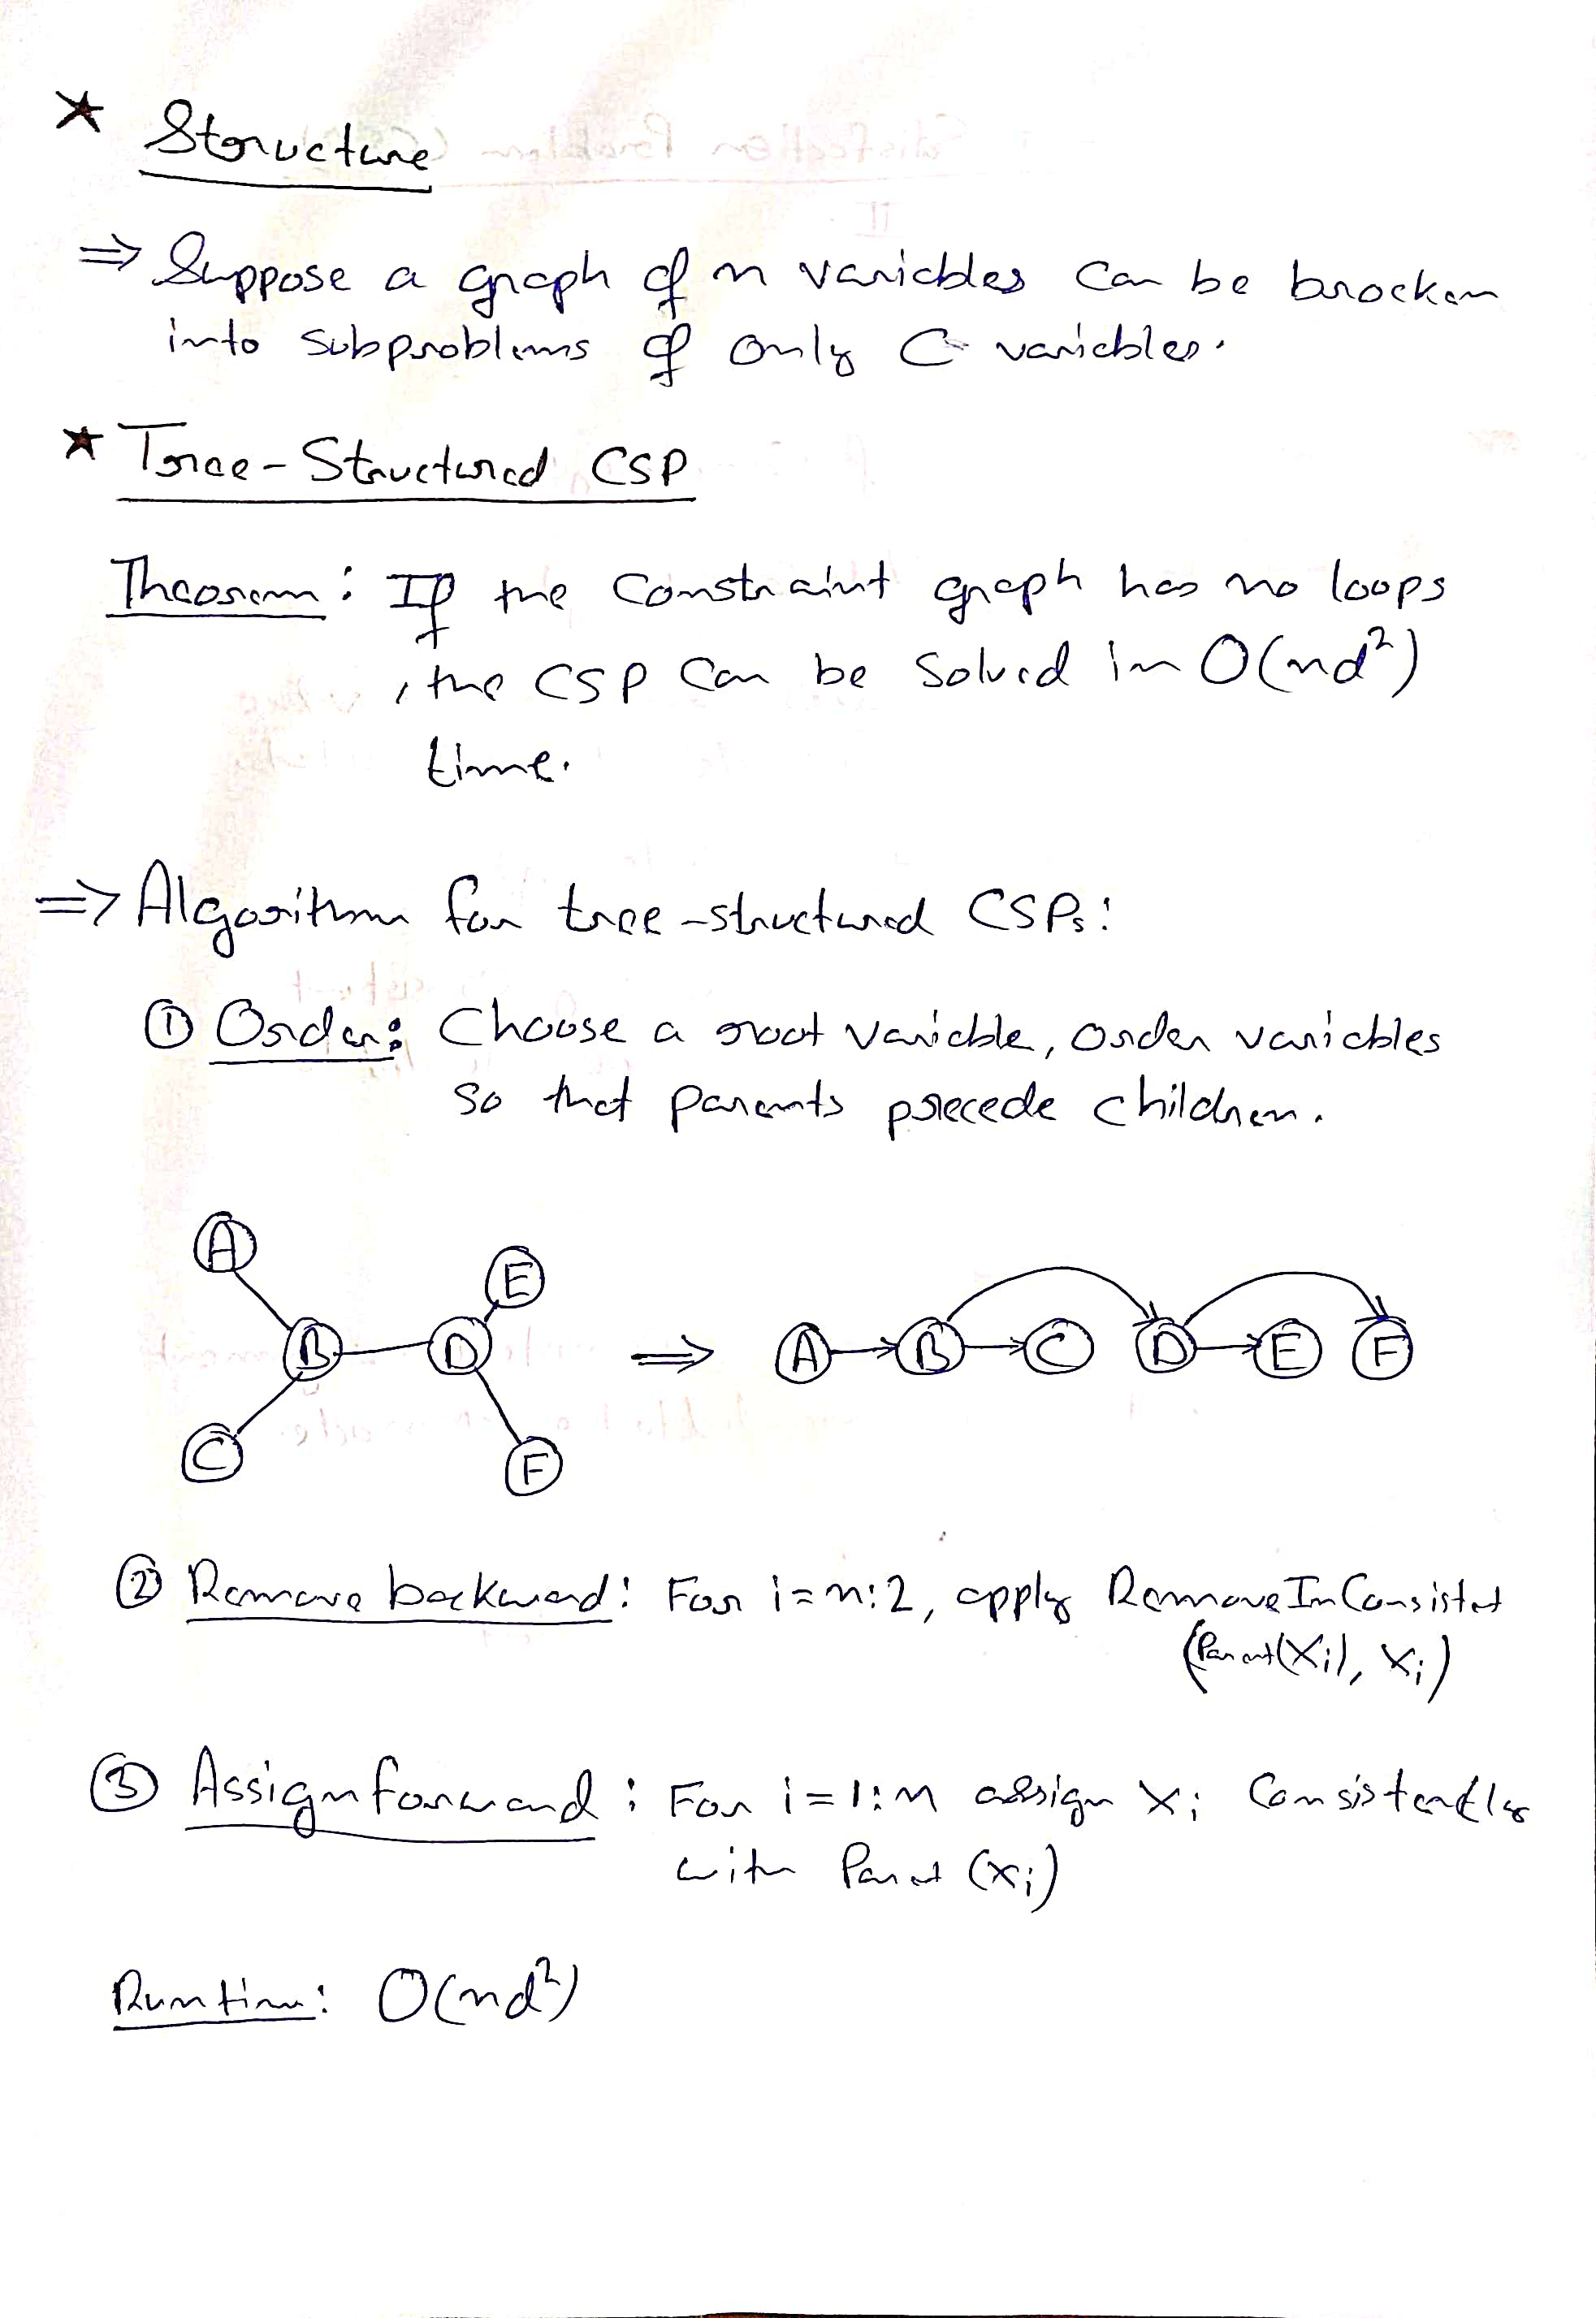 * Structure
⇒ Suppose a graph of n variables can be brocken
into subproblems of only C variables.
* Tree-Structured CSP
Theorem: If the constraint graph has no loops
, the CSP can be solved in O(nd²)
time.
⇒ Algorithm for tree-structured CSPs:
① Order: Choose a root variable, order variables
so that parents precede children.
A
E
B D ⇒ A B C D E F
C
F
② Remove backward: For i=n:2, apply RemoveInConsistent
(Parent(Xi), Xi)
③ Assign forward: For i=1:n assign Xi Consistently
with Parent (Xi)
Runtime: O(nd²)